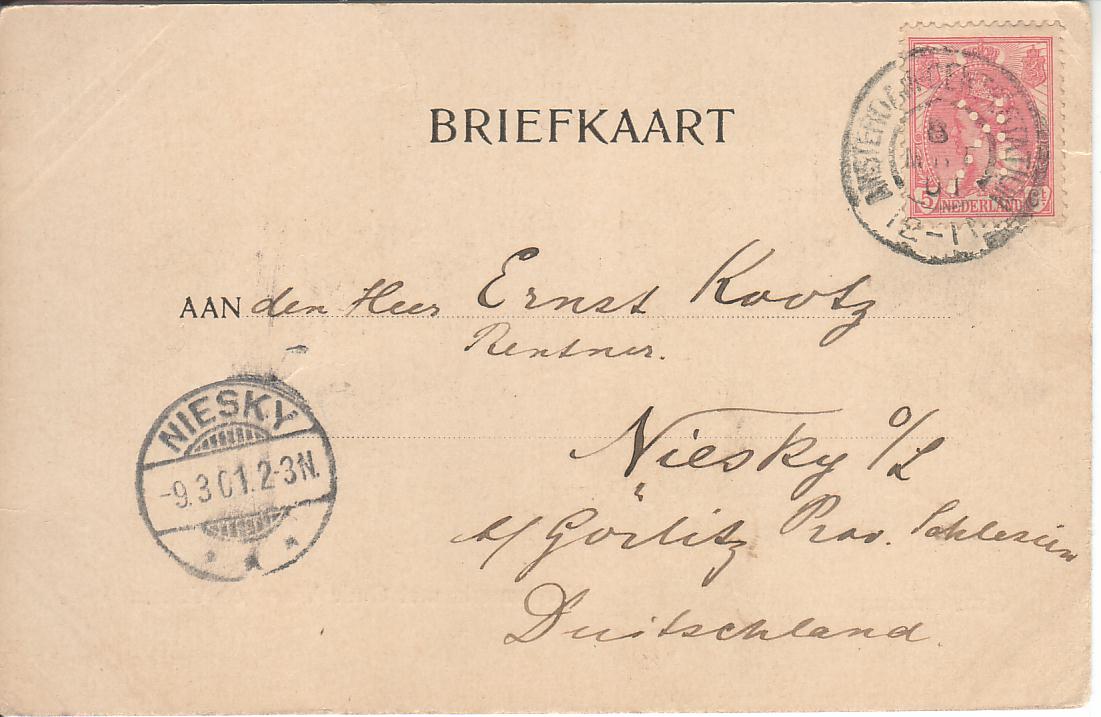 BRIEFKAART
AMSTERDAM CENTR. STATION
8
MRT
01
12-1
5 NEDERLAND ct
AAN den Heer Ernst Kootz
Rentner.
Niesky o/L
b/ Görlitz Prov. Schlesien
Duitschland.
NIESKY
-9.3 01. 2-3N.